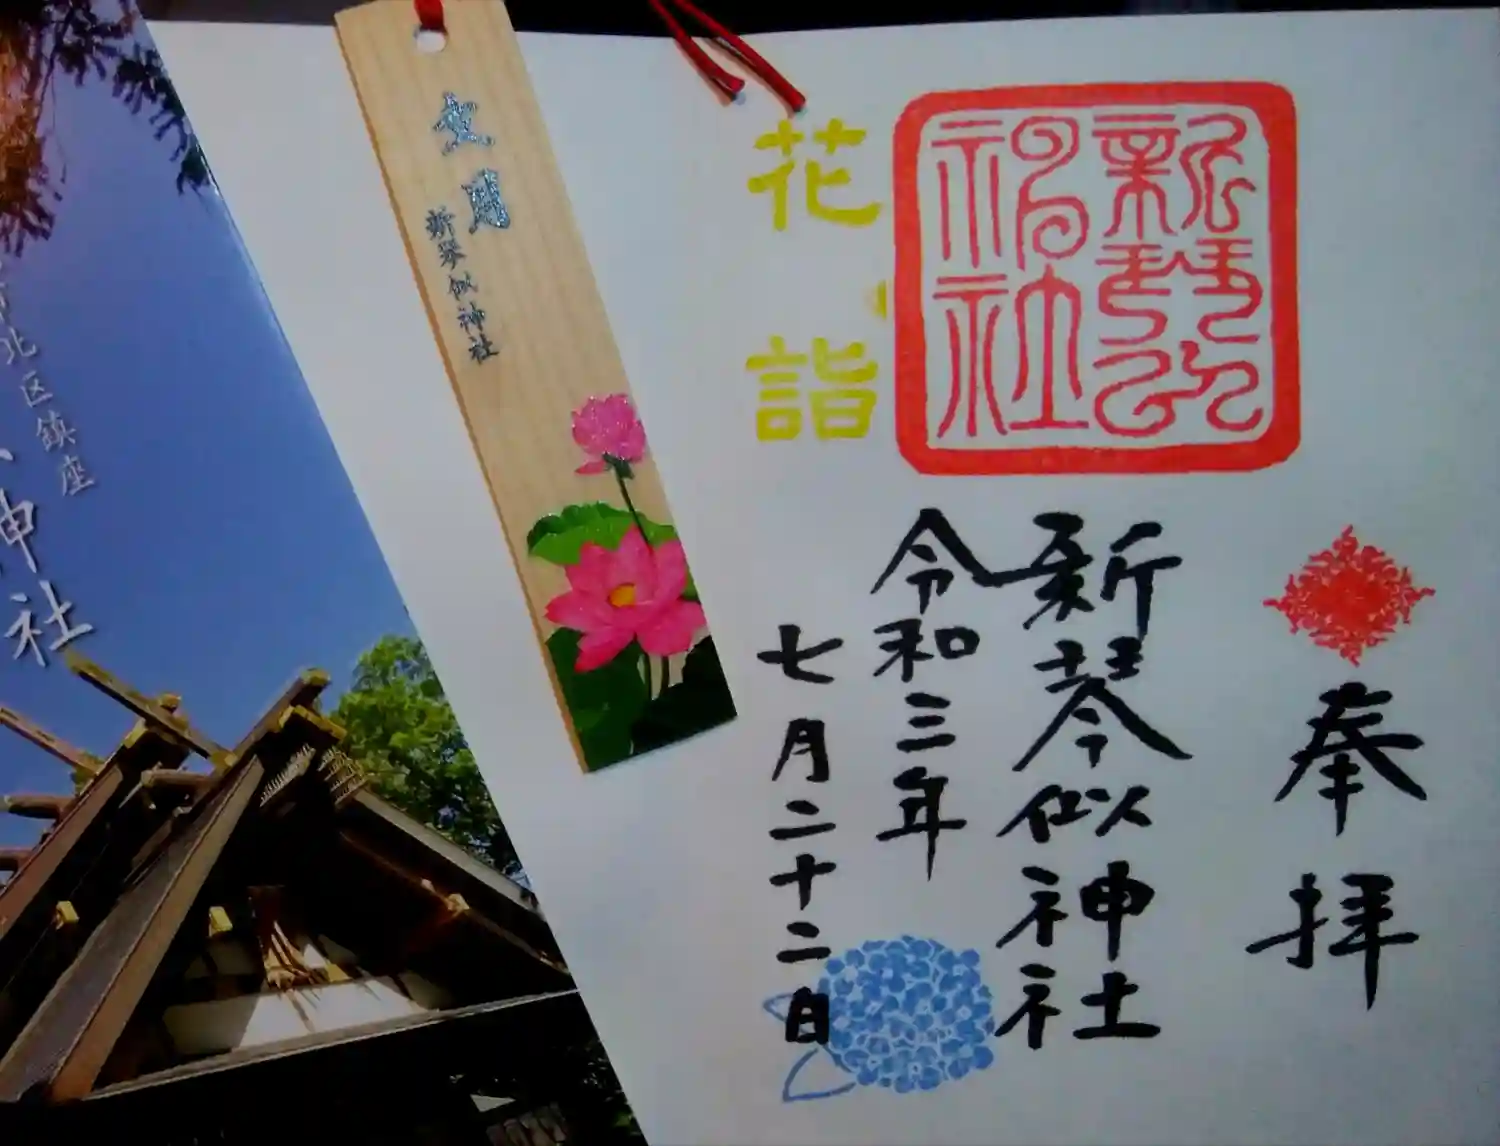 奉拝
新琴似神社
令和三年
七月二十二日
新琴似
神社
花詣
文月
新琴似神社
北区鎮座
神社